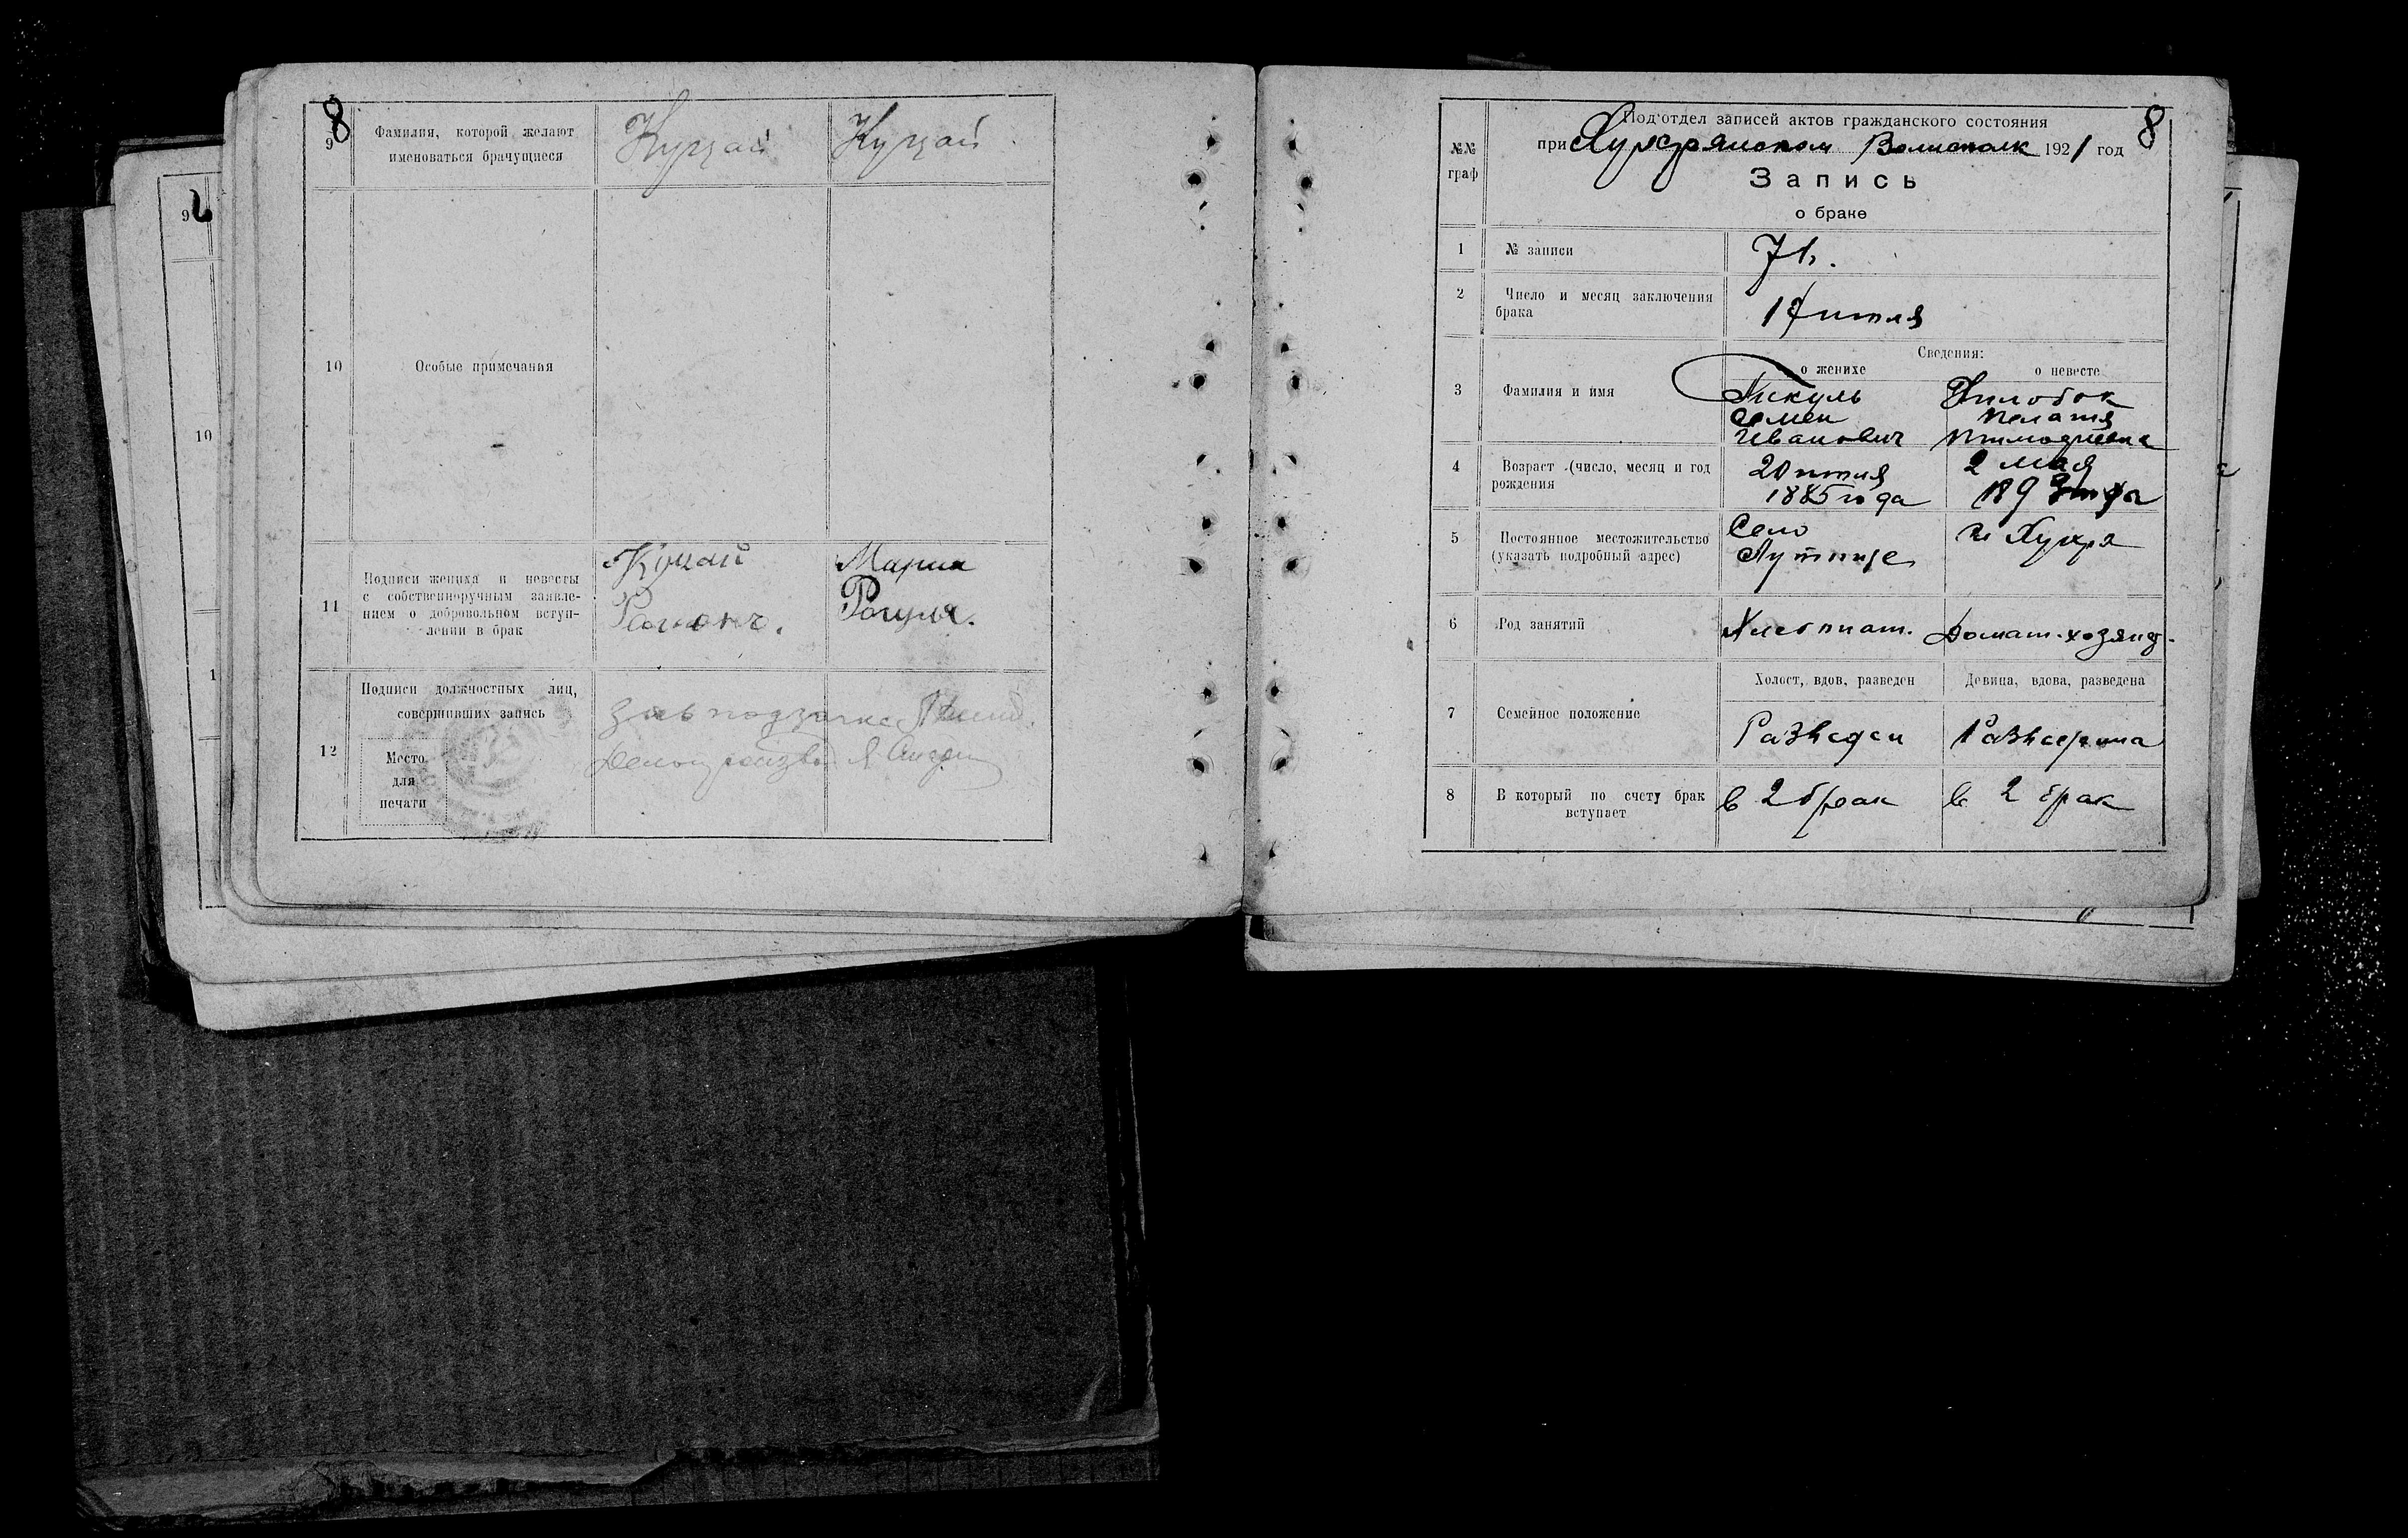 8
9
Фамилия, которой желают
именоваться брачущиеся
Куцай
Куцай
10
Особые примечания
11
Подписи жениха и невесты
с собственноручным заявле-
нием о добровольном вступ-
лении в брак
Куцай
Мария
Рогуля.
12
Подписи должностных лиц,
совершивших запись
Место
для
печати
Зав подзагс
Делопроизвод
9
10
1
8
№№
граф
Под'отдел записей актов гражданского состояния
при Хухрянском Волисполк 1921 год
Запись
о браке
1
№ записи
71.
2
Число и месяц заключения
брака
17 июля
Сведения:
о женихе
о невесте
3
Фамилия и имя
Пикуль
Семен
Иванович
Пелагия
Тимофіевна
4
Возраст (число, месяц и год
рождения
20 июля
1885 года
2 мая
1893 года
5
Постоянное местожительство
(указать подробный адрес)
Село
Лутище
с. Хухра
6
Род занятий
Хлебопаш.
Домаш. хозяй.
7
Семейное положение
Холост, вдов, разведен
Девица, вдова, разведена
Разведен
Разведена
8
В который по счету брак
вступает
в 2 брак
в 2 брак